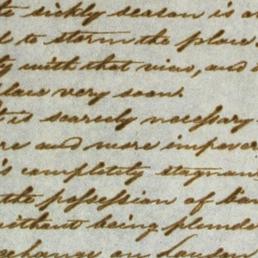 sickly season is
to storm the place
with that view, and
place very soon.
is scarcely necessary
and more impover
is completely stagnan
the possession of
without being plunde
exchange on London